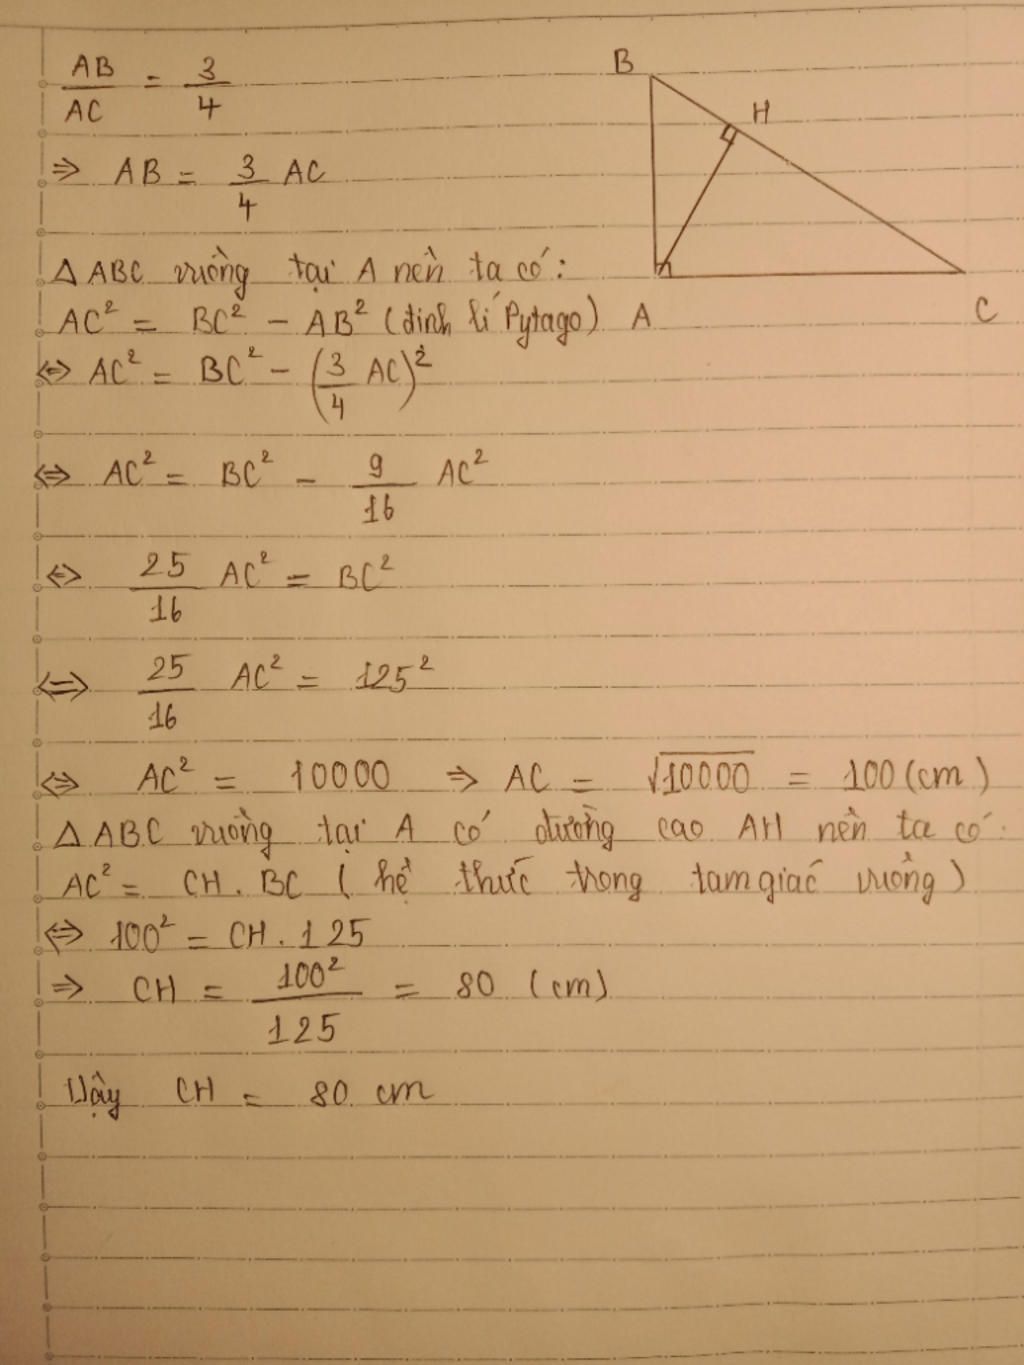 AB/AC = 3/4
⇒ AB = 3/4 AC
B
H
A
C
Δ ABC vuông tại A nên ta có:
AC² = BC² - AB² (định lí Pytago)
⇔ AC² = BC² - (3/4 AC)²
⇔ AC² = BC² - 9/16 AC²
⇔ 25/16 AC² = BC²
⇔ 25/16 AC² = 125²
⇔ AC² = 10000 ⇒ AC = √10000 = 100 (cm)
Δ ABC vuông tại A có đường cao AH nên ta có:
AC² = CH . BC (hệ thức trong tam giác vuông)
⇔ 100² = CH . 125
⇒ CH = 100²/125 = 80 (cm)
Vậy CH = 80 cm